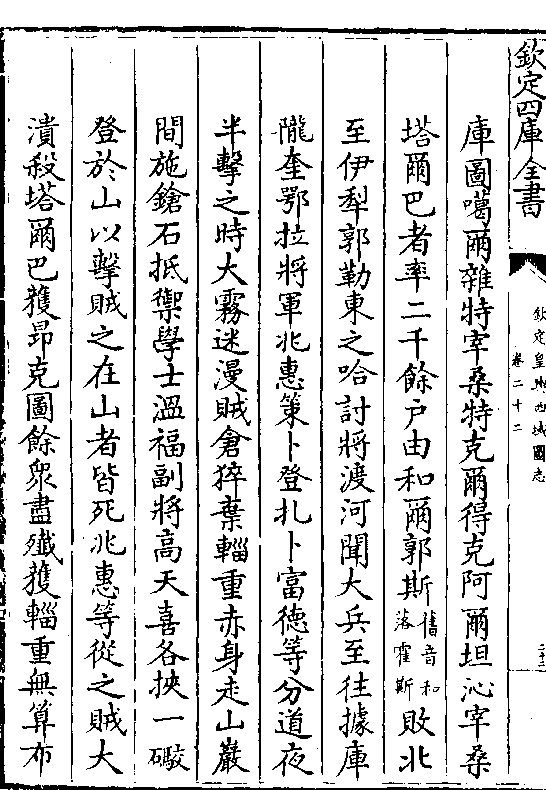 欽定四庫全書
欽定皇輿西域圖志
卷二十二
庫圖噶爾雜特宰桑特克爾得克阿爾坦沁宰桑
塔爾巴者率二千餘户由和爾郭斯舊音和落霍斯敗北
至伊犁郭勒東之哈討將渡河聞大兵至往據庫
隴奎鄂拉將軍兆惠策卜登扎卜富德等分道夜
半擊之時大霧迷漫賊倉猝棄輜重赤身走山巖
間施鎗石抵禦學士溫福副將高天喜各挾一礮
登於山以擊賊之在山者皆死兆惠等從之賊大
潰殺塔爾巴獲昂克圖餘衆盡殲獲輜重無算布